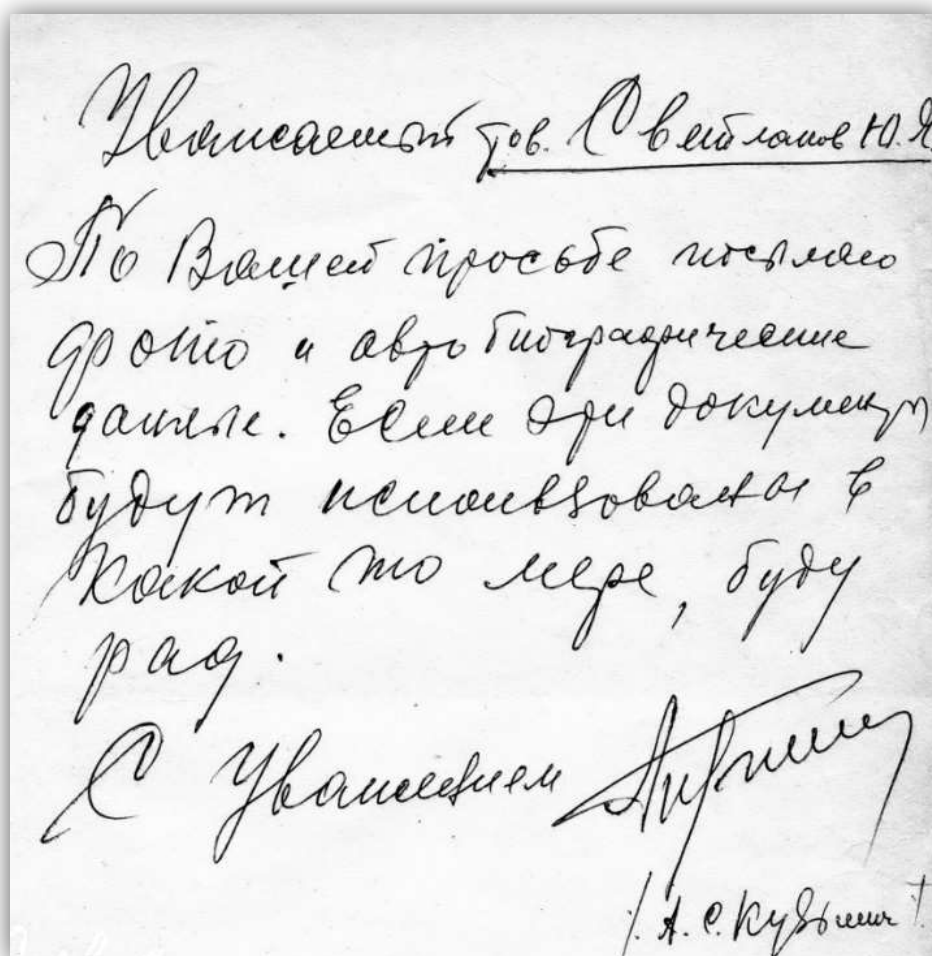 Уважаемый тов. Светланов Ю.Я.
По Вашей просьбе посылаю
фото и автобиографические
данные. Если эти документы
будут использованы в
какой то мере, буду
рад.
С Уважением
/. А. С. Кузьмин /.